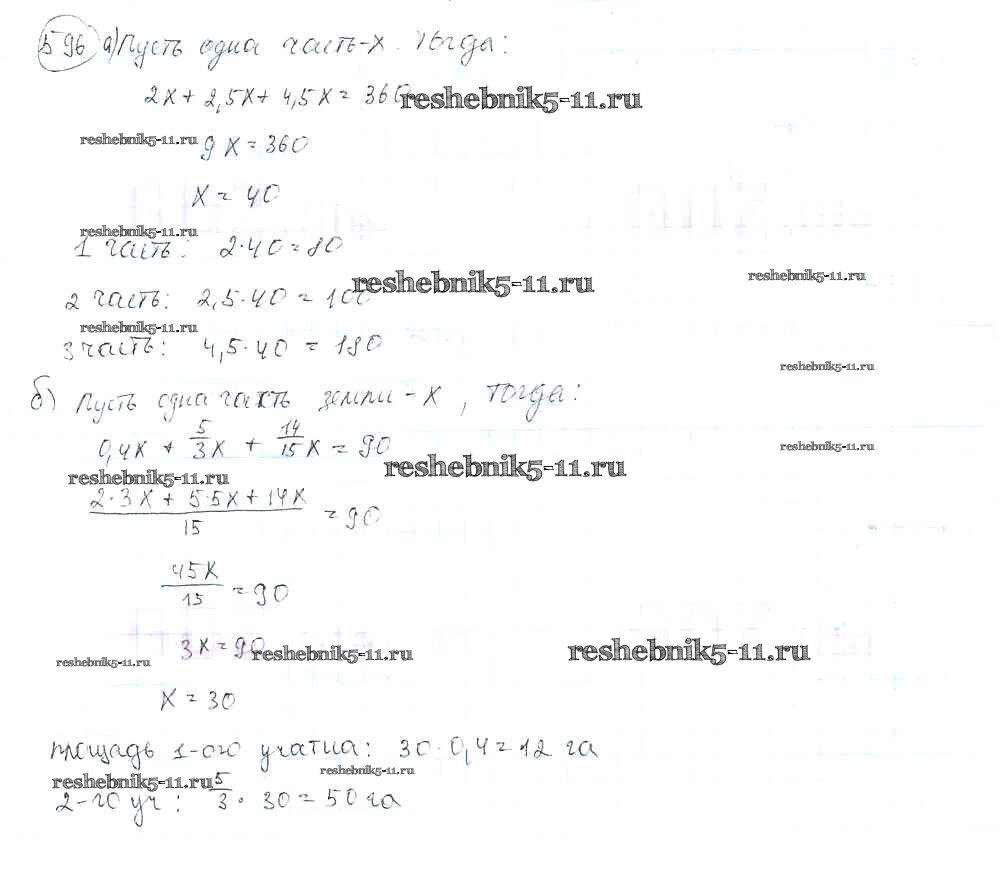 596 а) Пусть одна часть-х. Тогда:
2х + 2,5х + 4,5х = 360 reshebnik5-11.ru
reshebnik5-11.ru
9х = 360
х = 40
reshebnik5-11.ru
1 часть: 2·40=80
reshebnik5-11.ru reshebnik5-11.ru
2 часть: 2,5·40 = 100
reshebnik5-11.ru
3 часть: 4,5·40 = 180
reshebnik5-11.ru
б) Пусть одна часть земли - х, тогда:
0,4х + 5/3х + 14/15х = 90
reshebnik5-11.ru
reshebnik5-11.ru reshebnik5-11.ru
2·3х + 5·5х + 14х / 15 = 90
45х / 15 = 90
3х = 90
reshebnik5-11.ru reshebnik5-11.ru reshebnik5-11.ru
х = 30
площадь 1-ого учатка: 30·0,4=12 га
reshebnik5-11.ru reshebnik5-11.ru
2-го уч: 5/3·30=50га